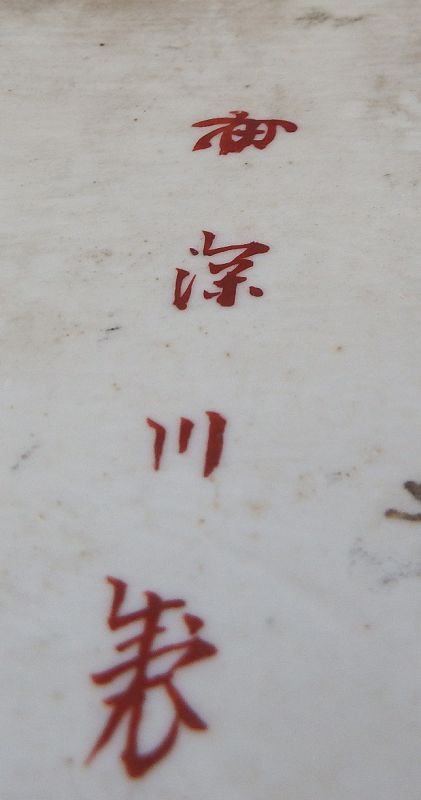 西深川製